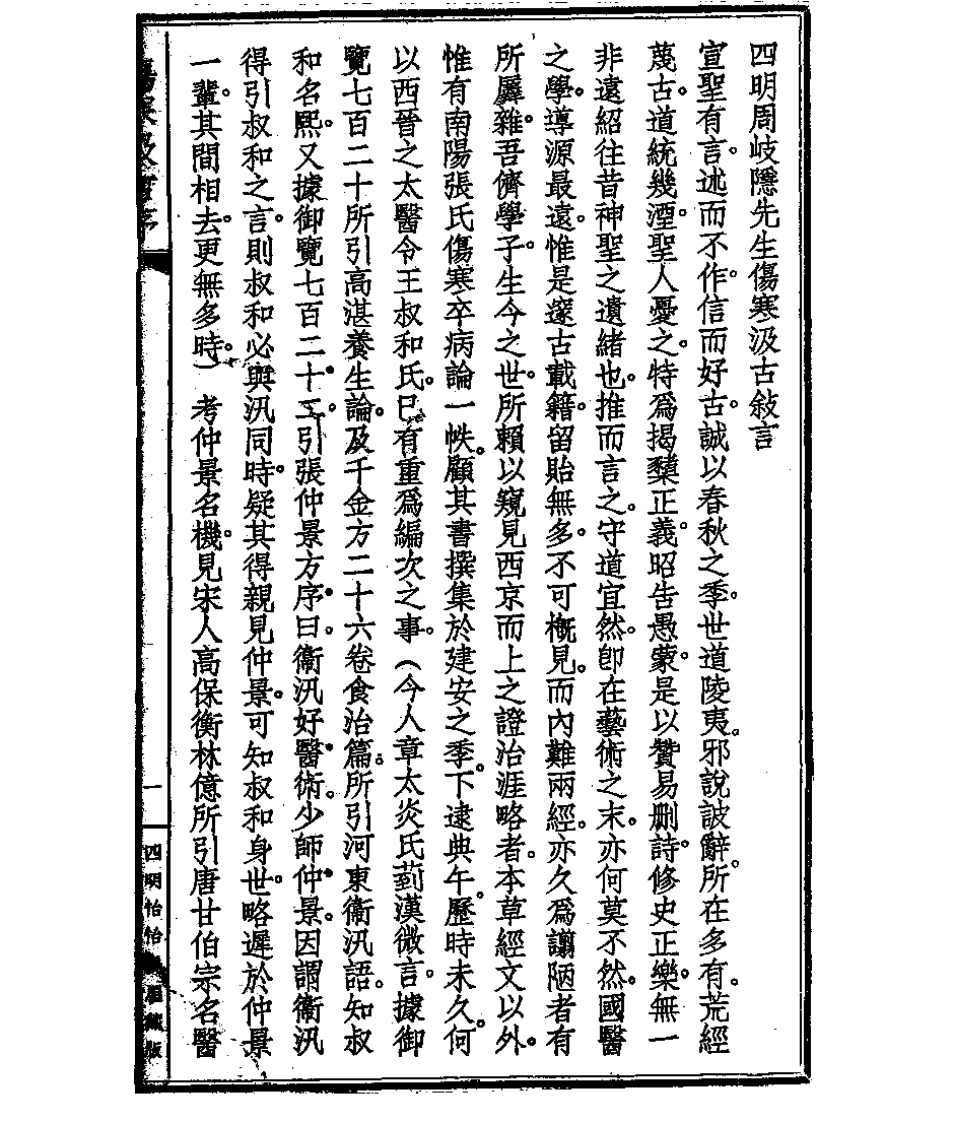 四明周岐隱先生傷寒汲古敍言
宣聖有言。述而不作。信而好古。誠以春秋之季。世道陵夷。邪說詖辭。所在多有。荒經
蔑古。道統幾湮。聖人憂之。特爲揭櫫正義。昭告愚蒙。是以贊易删詩。修史正樂。無一
非遠紹往昔神聖之遺緒也。推而言之。守道宜然。卽在藝術之末。亦何莫不然。國醫
之學。導源最遠。惟是邃古載籍。留貽無多。不可槪見。而內難兩經。亦久爲譾陋者有
所羼雜。吾儕學子。生今之世。所賴以窺見西京而上之證治涯略者。本草經文以外。
惟有南陽張氏傷寒卒病論一帙。顧其書撰集於建安之季。下逮典午。歷時未久。何
以西晉之太醫令王叔和氏。已有重爲編次之事。（今人章太炎氏菿漢微言。據御
覽七百二十所引高湛養生論。及千金方二十六卷食治篇。所引河東衞汛語。知叔
和名熙。又據御覽七百二十二。引張仲景方序曰。衞汛好醫術。少師仲景。因謂衞汛
得引叔和之言。則叔和必與汛同時。疑其得親見仲景。可知叔和身世。略遲於仲景
一輩。其間相去。更無多時。）考仲景名機。見宋人高保衡林億所引唐甘伯宗名醫
一
四明怡怡
藏版